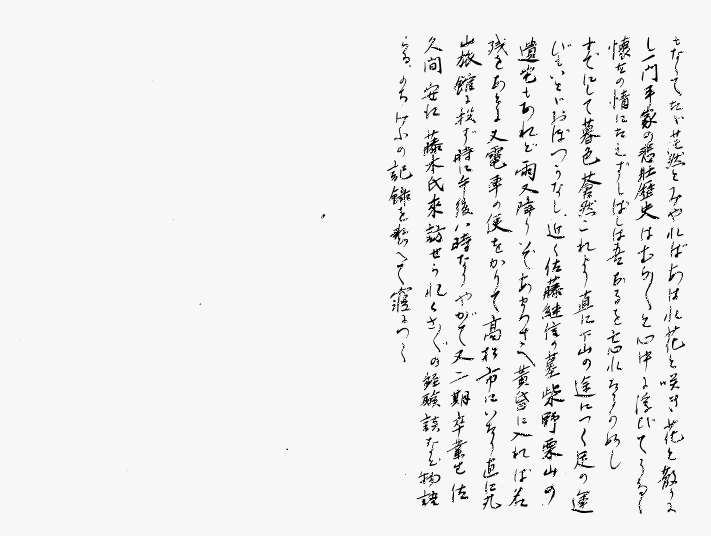 もなくてたゞ茫然とみやればあはれ花と咲き花と散りに
し一門平家の悲壮歴史はむら〳〵と心中に浮びてうるゝ
懐古の情にたえずしばしは吾あるを忘れたりの如し
すでにして暮色蒼然これより直に下山の途につく足の運
びもいとゞおぼつかなし、近く佐藤継信の墓柴野栗山の
遺宅もあれど雨又降りいであまつさへ黄昏に入れば名
残をあとに又電車の便をかりて高松市にいたり直に丸
山旅館に投ず時に午後八時なりやがて又二期卒業生佐
久間 安江 藤木氏来訪せられくさ〴〵の経験談など物語
らる、のちけふの記録を整へて寝につく